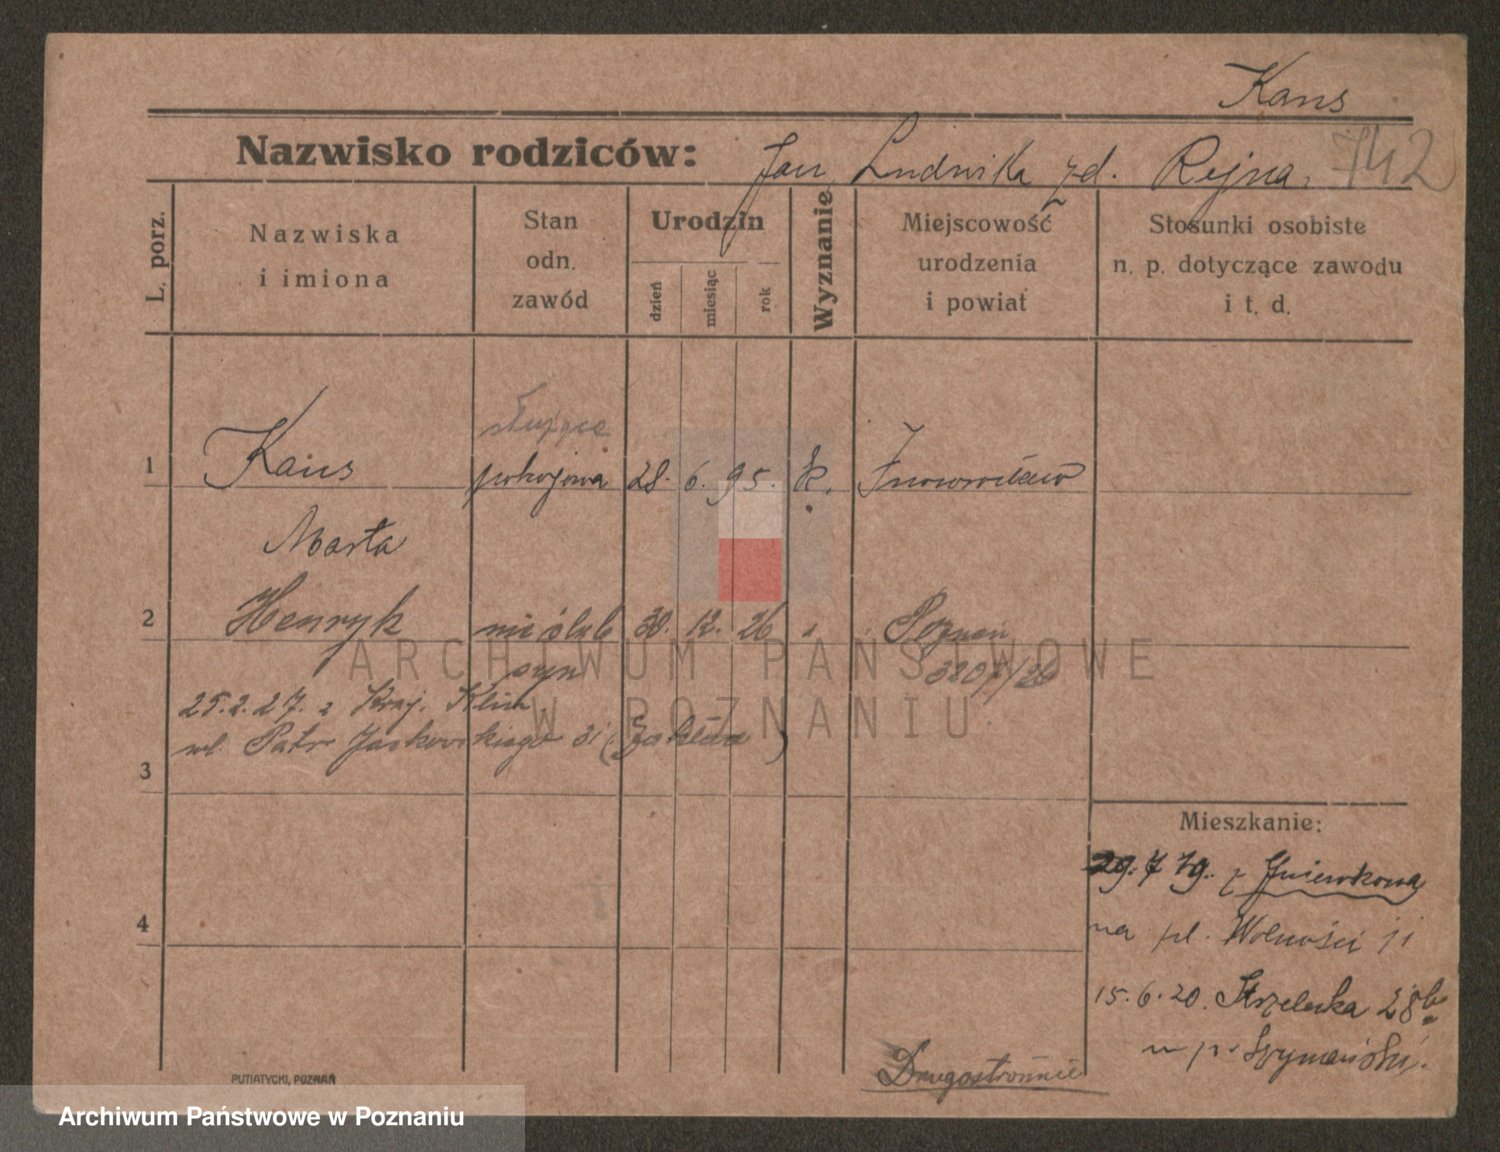 Kans
Nazwisko rodziców: Jan, Ludwika zd. Rejna. 742
L. porz.
Nazwiska
i imiona
Stan
odn.
zawód
Urodzin
dzień
miesiąc
rok
Wyznanie
Miejscowość
urodzenia
i powiat
Stosunki osobiste
n. p. dotyczące zawodu
i t. d.
służąca
1 Kans pokojowa 28. 6. 95. k. Inowrocław
Marta
2 Henryk nieślub 30. 12. 26 " Poznań
syn 3207/26
25.2.27. z Kraj. Klin.
ul. Patr. Jackowskiego 31
3
ARCHIWUM PAŃSTWOWE
W POZNANIU
Mieszkanie:
29. 7 19. z Gniewkowa
na pl. Wolności 11
4
15. 6. 20. Strzelecka 28b
u p. Szymański.
Drugostronnie
PUTIATYCKI, POZNAŃ
Archiwum Państwowe w Poznaniu